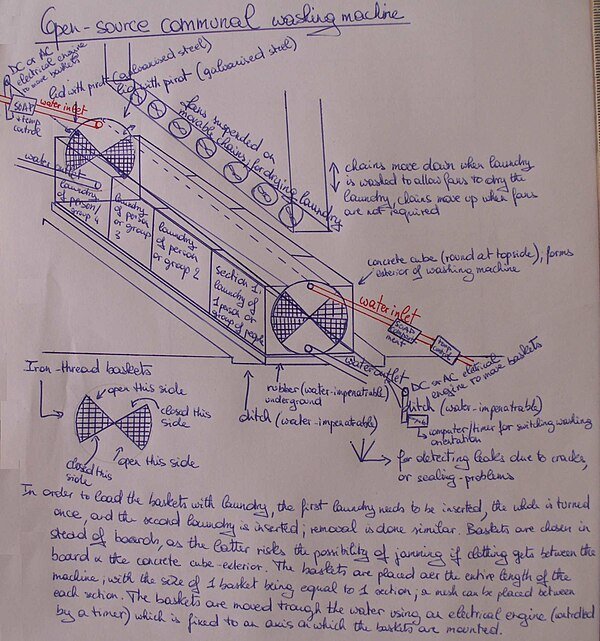 Open-source communal washing machine
DC or AC
electrical engine
to move baskets
lid with pivot (galvanised steel)
lid with pivot (galvanised steel)
SOAP
+ temp
control
water inlet
fans suspended on
movable chains, for drying laundry
chains move down when laundry
is washed to allow fans to dry the
laundry, chains move up when fans
are not required
water outlet
laundry
of person/
group 4
laundry
of person
or group
3
laundry
of person
or group 2
section 1:
laundry of
1 person or
group of people
concrete cube (round at topside), forms
exterior of washing machine
water inlet
SOAP
compart
ment
temp
control
water outlet
DC or AC electrical
engine to move baskets
Iron-thread baskets
open this side
closed this
side
closed this
side
open this side
rubber (water-impenatrable)
underground
ditch (water-impenatrable)
ditch (water-impenatrable)
computer/timer for switching washing
orientation
for detecting leaks due to cracks,
or sealing-problems
In order to load the baskets with laundry, the first laundry needs to be inserted, the whole is turned
once, and the second laundry is inserted; removal is done similar. Baskets are chosen in
stead of boards, as the latter risks the possibility of jamming if clothing gets between the
board & the concrete cube-exterior. The baskets are placed over the entire length of the
machine; with the size of 1 basket being equal to 1 section; a mesh can be placed between
each section. The baskets are moved trough the water using an electrical engine (controlled
by a timer) which is fixed to an axis on which the baskets are mounted.